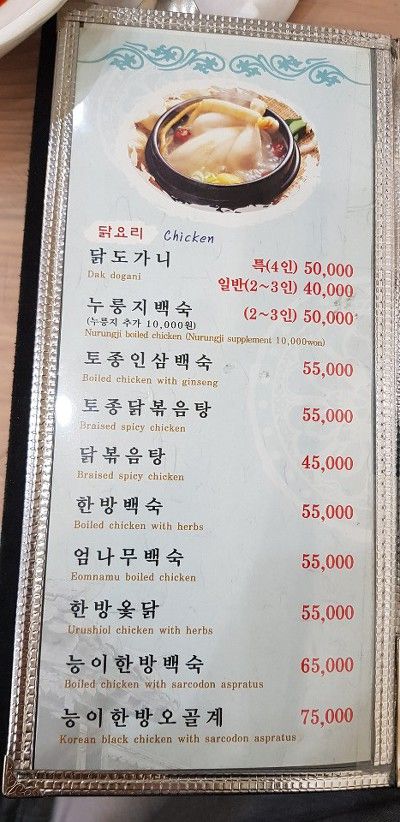 닭요리 Chicken
닭도가니 특(4인) 50,000
Dak dogani
일반(2~3인) 40,000
누룽지백숙 (2~3인) 50,000
(누룽지 추가 10,000원)
Nurungji boiled chicken (Nurungji supplement 10,000won)
토종인삼백숙 55,000
Boiled chicken with ginseng
토종닭볶음탕 55,000
Braised spicy chicken
닭볶음탕 45,000
Braised spicy chicken
한방백숙 55,000
Boiled chicken with herbs
엄나무백숙 55,000
Eomnamu boiled chicken
한방옻닭 55,000
Urushiol chicken with herbs
능이한방백숙 65,000
Boiled chicken with sarcodon aspratus
능이한방오골계 75,000
Korean black chicken with sarcodon aspratus